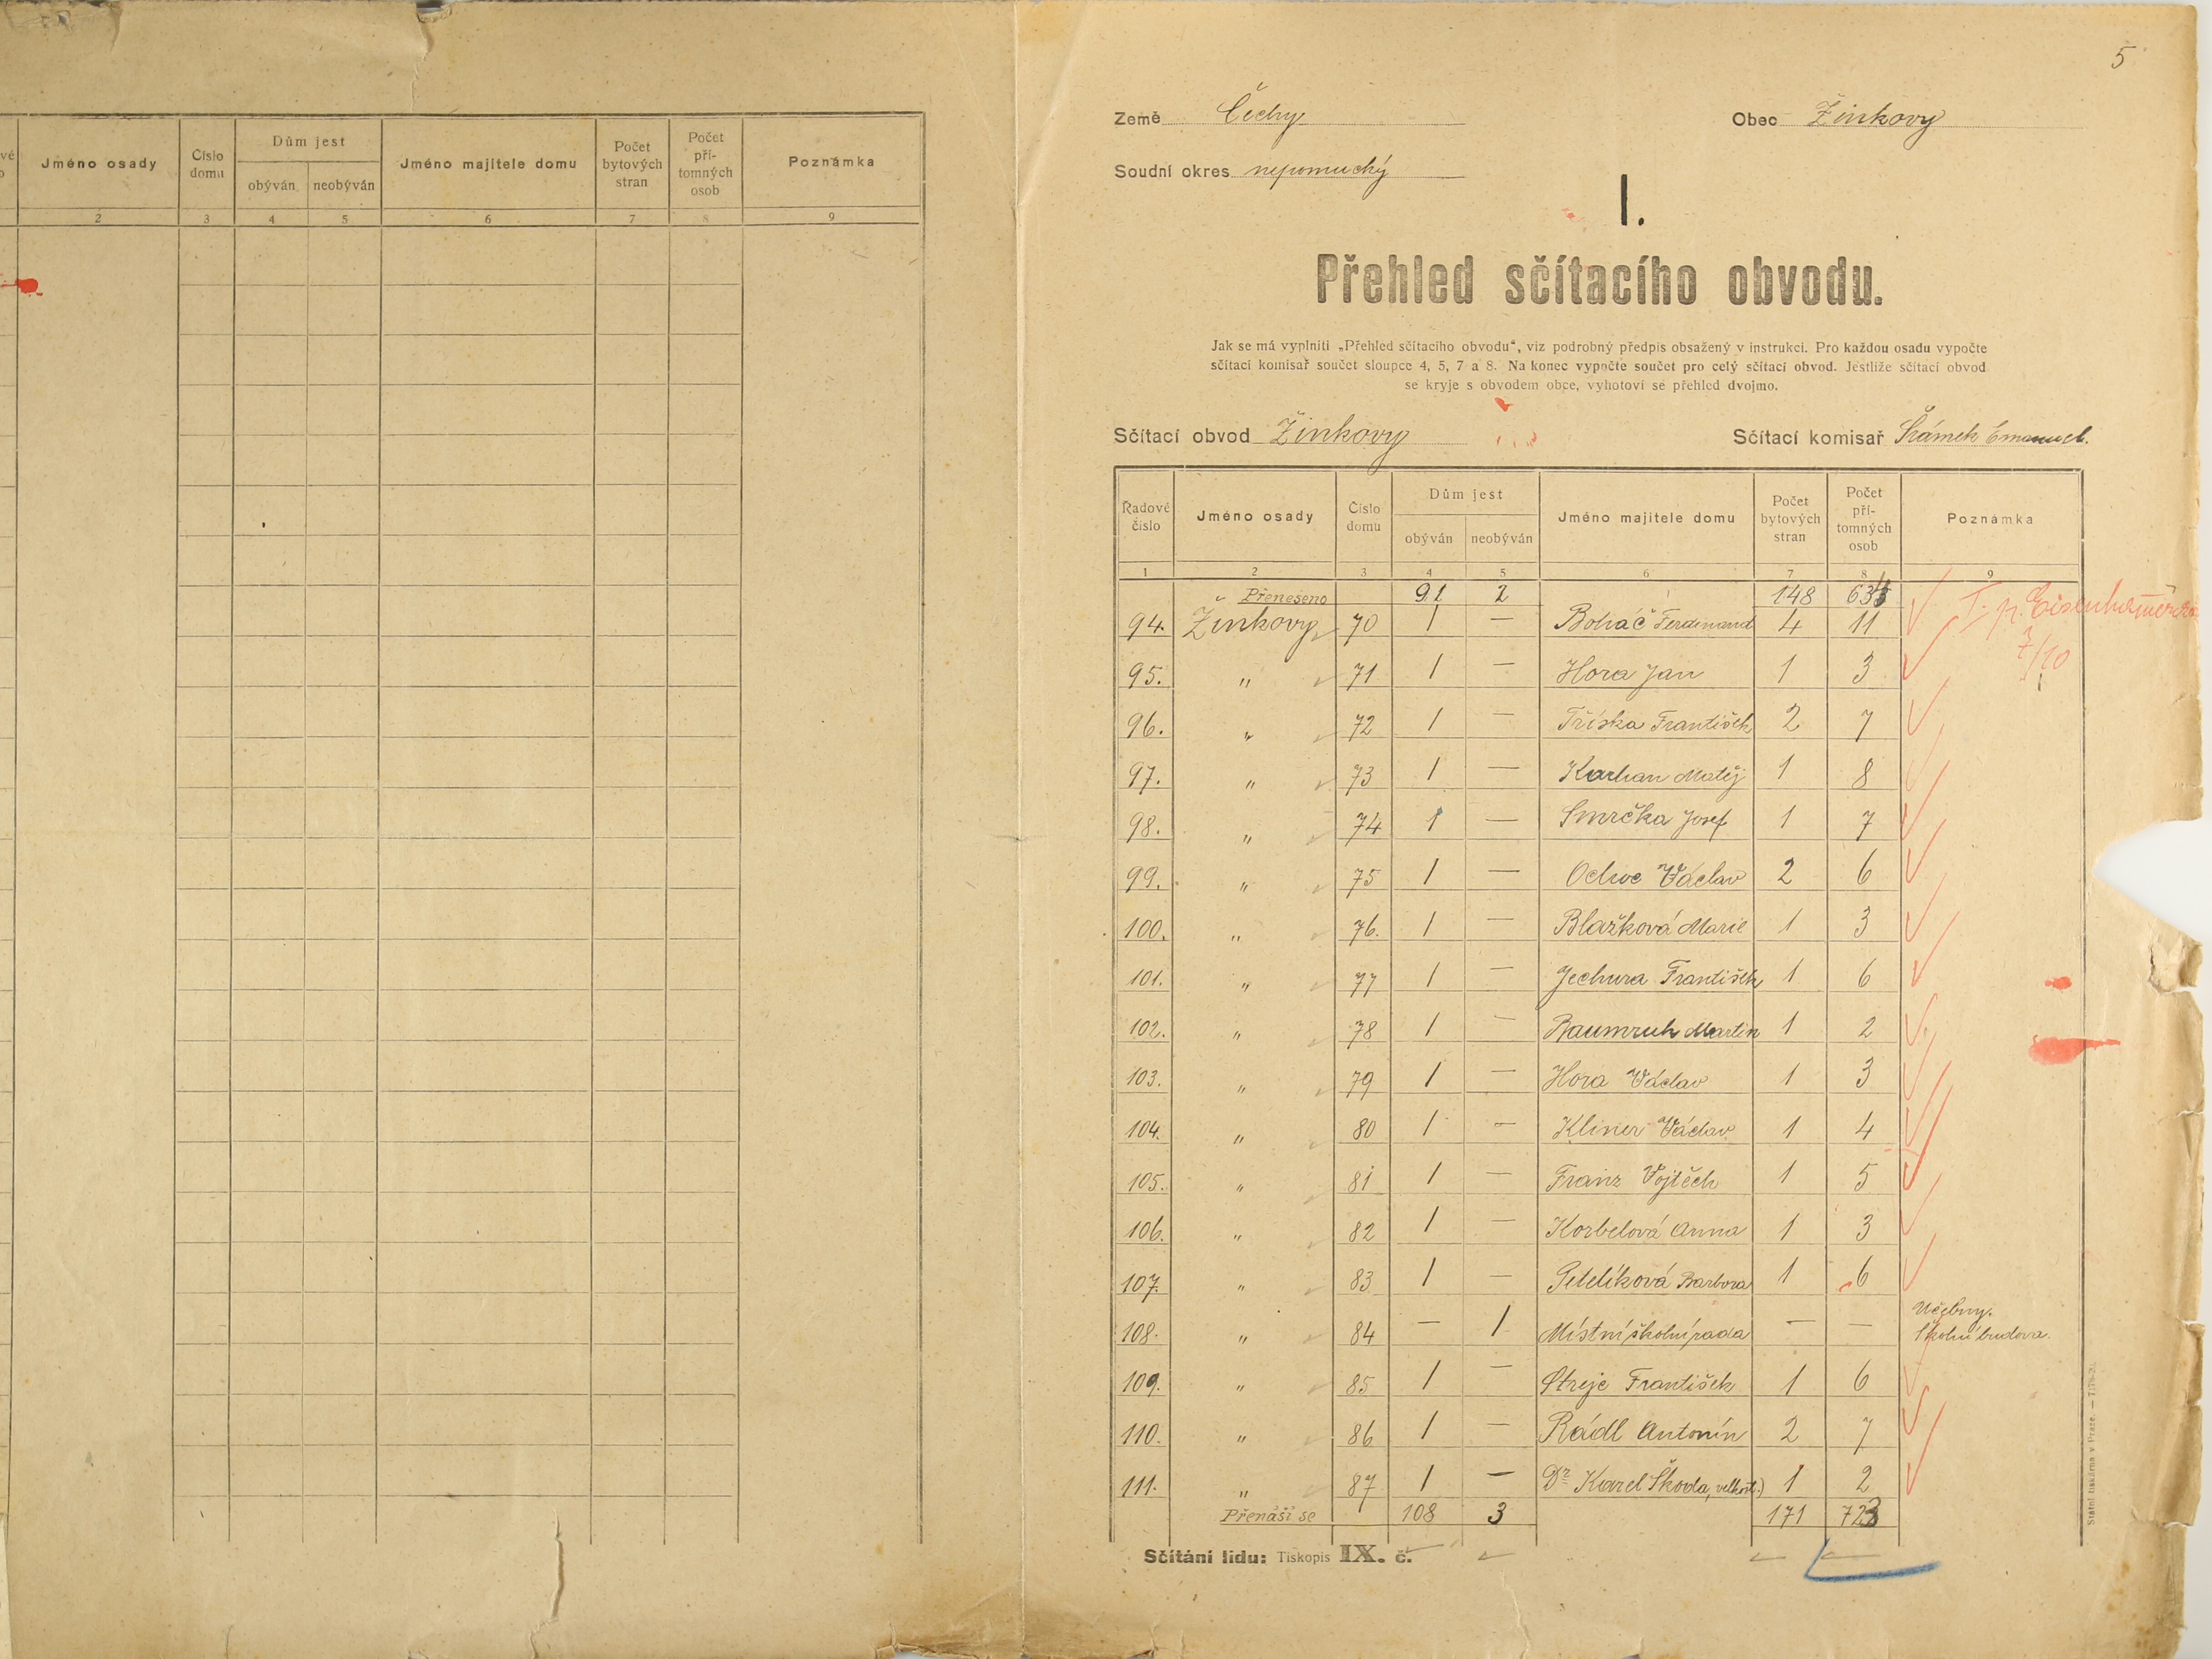 Jméno osady
Číslo domu
Dům jest
obýván
neobýván
Jméno majitele domu
Počet bytových stran
Počet pří- tomných osob
Poznámka
2 3 4 5 6 7 8 9
5
Země Čechy
Obec Žinkovy
Soudní okres nepomucký
I.
Přehled sčítacího obvodu.
Jak se má vyplniti „Přehled sčítacího obvodu“, viz podrobný předpis obsažený v instrukci. Pro každou osadu vypočte
sčítací komisař součet sloupce 4, 5, 7 a 8. Na konec vypočte součet pro celý sčítací obvod. Jestliže sčítací obvod
se kryje s obvodem obce, vyhotoví se přehled dvojmo.
Sčítací obvod Žinkovy
Sčítací komisař Šrámek Emanuel.
Řadové číslo
Jméno osady
Číslo domu
Dům jest
obýván
neobýván
Jméno majitele domu
Počet bytových stran
Počet pří- tomných osob
Poznámka
1 2 3 4 5 6 7 8 9
Přenešeno 91 2 148
94. Žinkovy 70 1 — Boháč Ferdinand 4 11
95. " 71 1 — Hora Jan 1 3
7/10
96. " 72 1 — Tříska František 2 7
97. " 73 1 — Karhan Matěj 1 8
98. " 74 1 — Smrčka Josef 1 7
99. " 75 1 — Václav 2 6
100. " 76. 1 — Blažková Marie 1 3
101. " 77 1 — Jechura František 1 6
102. " 78 1 — Baumruk Martin 1 2
103. " 79 1 — Hora Václav 1 3
104. " 80 1 — Kliner Václav 1 4
105. " 81 1 — Franz Vojtěch 1 5
106. " 82 1 — Korbelová Anna 1 3
107. " 83 1 — Petelíková Barbora 1 6
108. " 84 — 1 Místní školní rada — — Učebny. Školní budova.
109. " 85 1 — Streje František 1 6
110. " 86 1 — Rádl Antonín 2 7
111. " 87 1 — Dr Karel Škoda, velkost.) 1 2
Přenáší se 108 3 171 723
Sčítání lidu: Tiskopis IX. č.
Státní tiskárna v Praze.